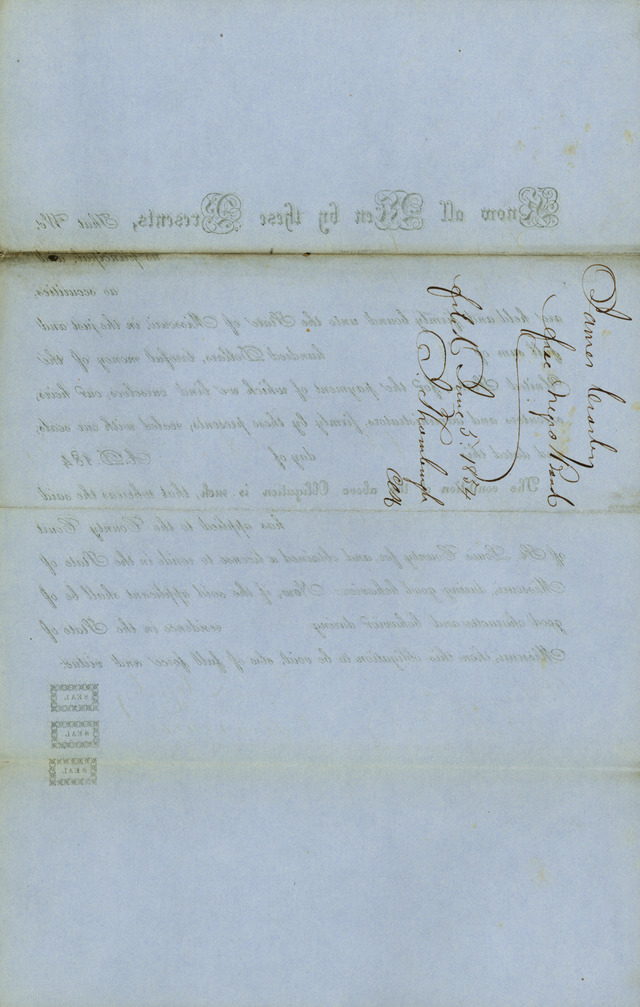 James
free negro Bond
filed 5. 1854
Clk
Know all Men by these Presents, That We
as principal, and
as securities,
are held and firmly bound unto the State of Missouri, in the just and
full sum of hundred Dollars, lawful money of the
United States, for the payment of which we bind ourselves, our heirs,
executors and administrators, firmly by these presents, sealed with our seals,
and dated this day of A.D. 184
The condition of the above Obligation is such, that whereas the said
has applied to the County Court
of St. Louis County for, and obtained a license to reside in the State of
Missouri, during good behavior: Now, if the said applicant shall be of
good character and behavior during residence in the State of
Missouri, then this obligation to be void, else of full force and virtue.
SEAL
SEAL
SEAL